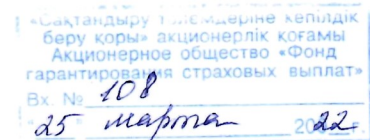 «Сақтандыру төлемдеріне кепілдік
беру қоры» акционерлік қоғамы
Акционерное общество «Фонд
гарантирования страховых выплат»
Вх. № 108
"25" марта 2022 г.